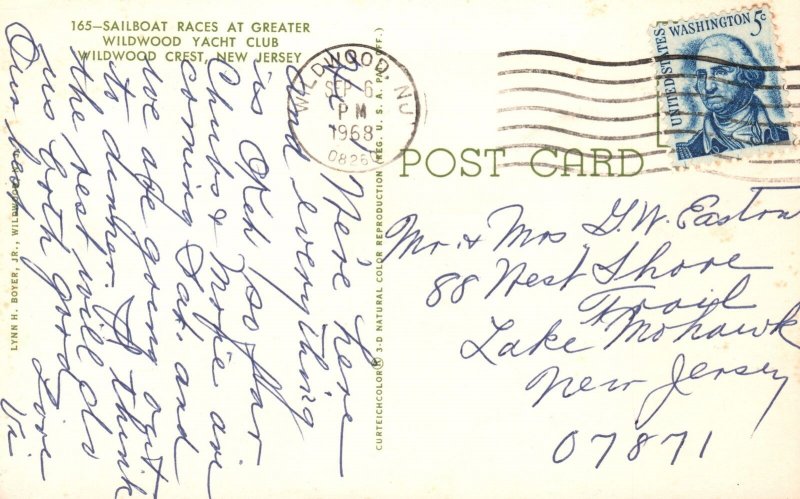 165—SAILBOAT RACES AT GREATER
WILDWOOD YACHT CLUB
WILDWOOD CREST, NEW JERSEY
LYNN H. BOYER, JR., WILDWOOD
CURTEICHCOLOR® 3-D NATURAL COLOR REPRODUCTION (REG. U. S. A. PAT. OFF.)
WILDWOOD NJ
SEP 6
PM
1968
0826
UNITED STATES
WASHINGTON 5c
POST CARD
Hi, We're here
and everything
is O.K. so far
Chubs & Marie are
coming Sat. and
we are going out
to dinner. I think
the rest will do
us both good
Love
Vi
Mr. & Mrs G. W. Easton
88 West Shore
Trail
Lake Mohawk
New Jersey
07871